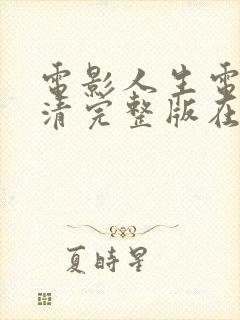 電影人生電
清完整版在
夏時星